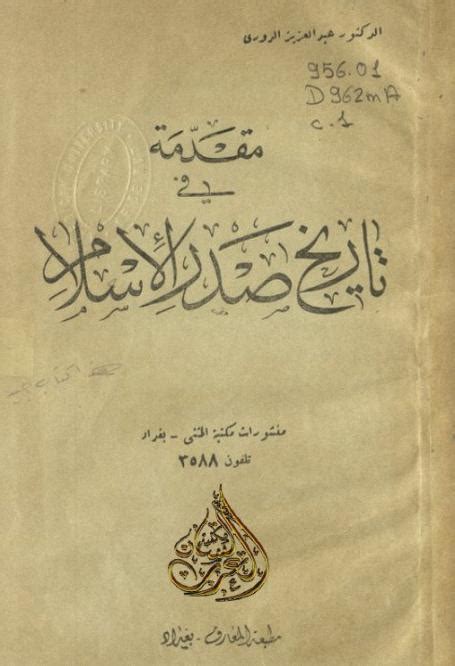 الدكتور عبد العزيز الدوري
956.01
D962mA
c.1
مقدمة
في
تاريخ صدر الإسلام
منشورات مكتبة المثنى - بغداد
تلفون ٣٥٨٨
مكتبة
لسان العرب
مطبعة المعارف - بغداد